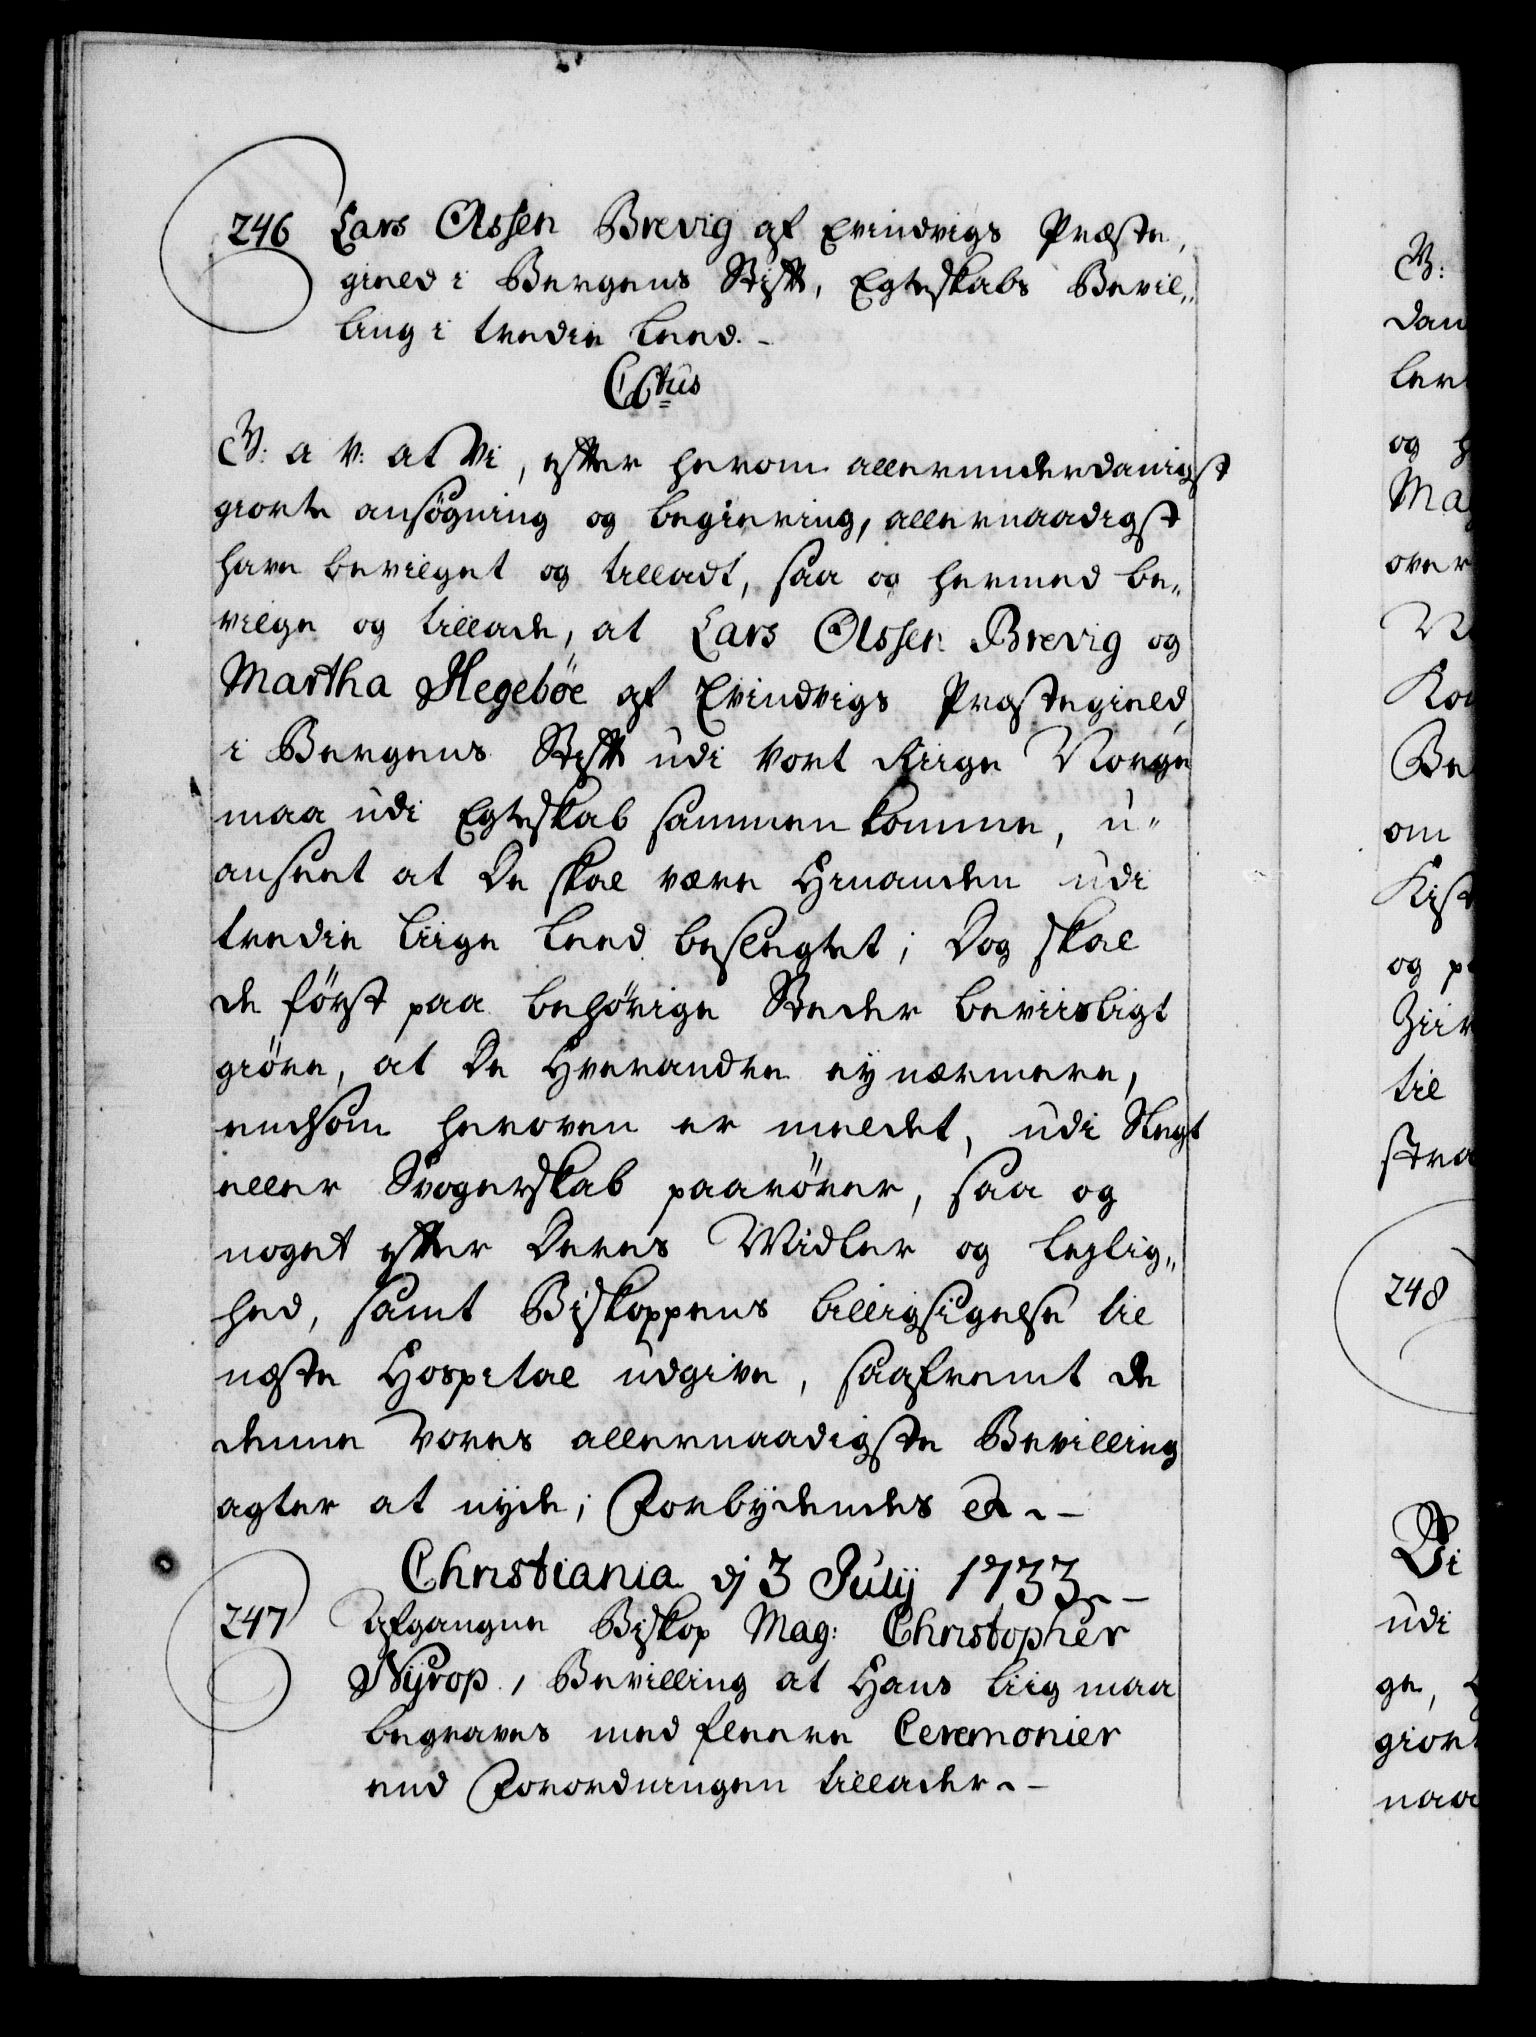 246 Lars Olssen Brevig af Evindvigs Præste,
gield i Bergens Stift, Egteskabs Bevil„
ling i tredie Leed. –
CVtus
G: a V: at Vi, efter herom allerunderdanigst
giorte ansøgning og begiering, allernaadigst
have bevilget og tilladt, saa og hermed be„
vilge og tillade, at Lars Olssen Brevig og
Martha Hegebøe af Evindvigs Prestegield
i Bergens Stift udi Vort Riige Norge
maa udi Egteskab sammen komme, u„
anseet at De skal være Hinanden udi
tredie liige Leed beslegtet; Dog skal
de först paa behörige Steder beviisligt
giöre, at De Hverandre ey nærmere,
endsom heroven er meldet, udi Slegt
eller Svogerskab paarörer, saa og
noget efter Deres Midler og Leylig„
hed, samt Biskoppens billigsigelse til
neste Hospital udgive, saafremt de
denne Vores allernaadigste Bevilling
agter at nyde; Forbydendes &. –
Christiania dj 3 Julij 1733. –
247 Afgangne Biskop Mag: Christopher
Nyrop, Bevilling at Hans Liig maa
begraves med fleere Ceremonier
end Forordningen tillader. –
G:
dan
og
Ma
over
Be
om
Kist
og p
til
stra
248
Vi
udi
ge,
giort
naa